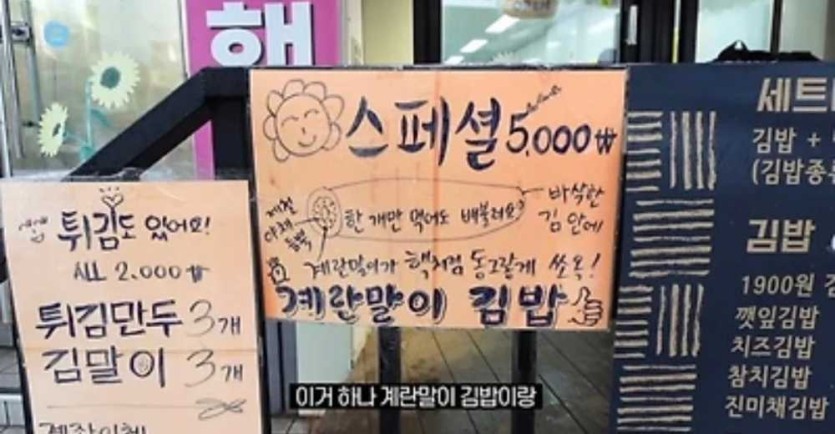 핵
튀김도 있어요!
ALL 2.000₩
튀김만두 3개
김말이 3개
스페셜 5,000₩
제철
야채
듬뿍
한 개만 먹어도 배불러요?
바삭한
김 안에
계란말이가 핵처럼 동그랗게 쏘옥!
계란말이 김밥
세트
김밥 +
(김밥종류
김밥
1900원
깻잎김밥
치즈김밥
참치김밥
진미채김밥
이거 하나 계란말이 김밥이랑